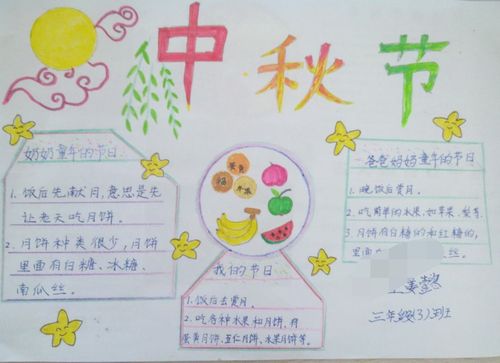 中秋节
奶奶童年的节日
1. 饭后先献月，意思是先
让老天吃月饼。
2. 月饼种类很少，月饼
里面有白糖、冰糖、
南瓜丝。
蛋黄
苹果
我的节日
1. 饭后去赏月。
2. 吃各种水果和月饼，有
蛋黄月饼、五仁月饼、水果月饼等。
爸爸妈妈童年的节日
1. 晚饭后赏月。
2. 吃简单的水果，如苹果、梨等
3. 月饼有白糖的和红糖的，
里面
丝。
三年级(3)班